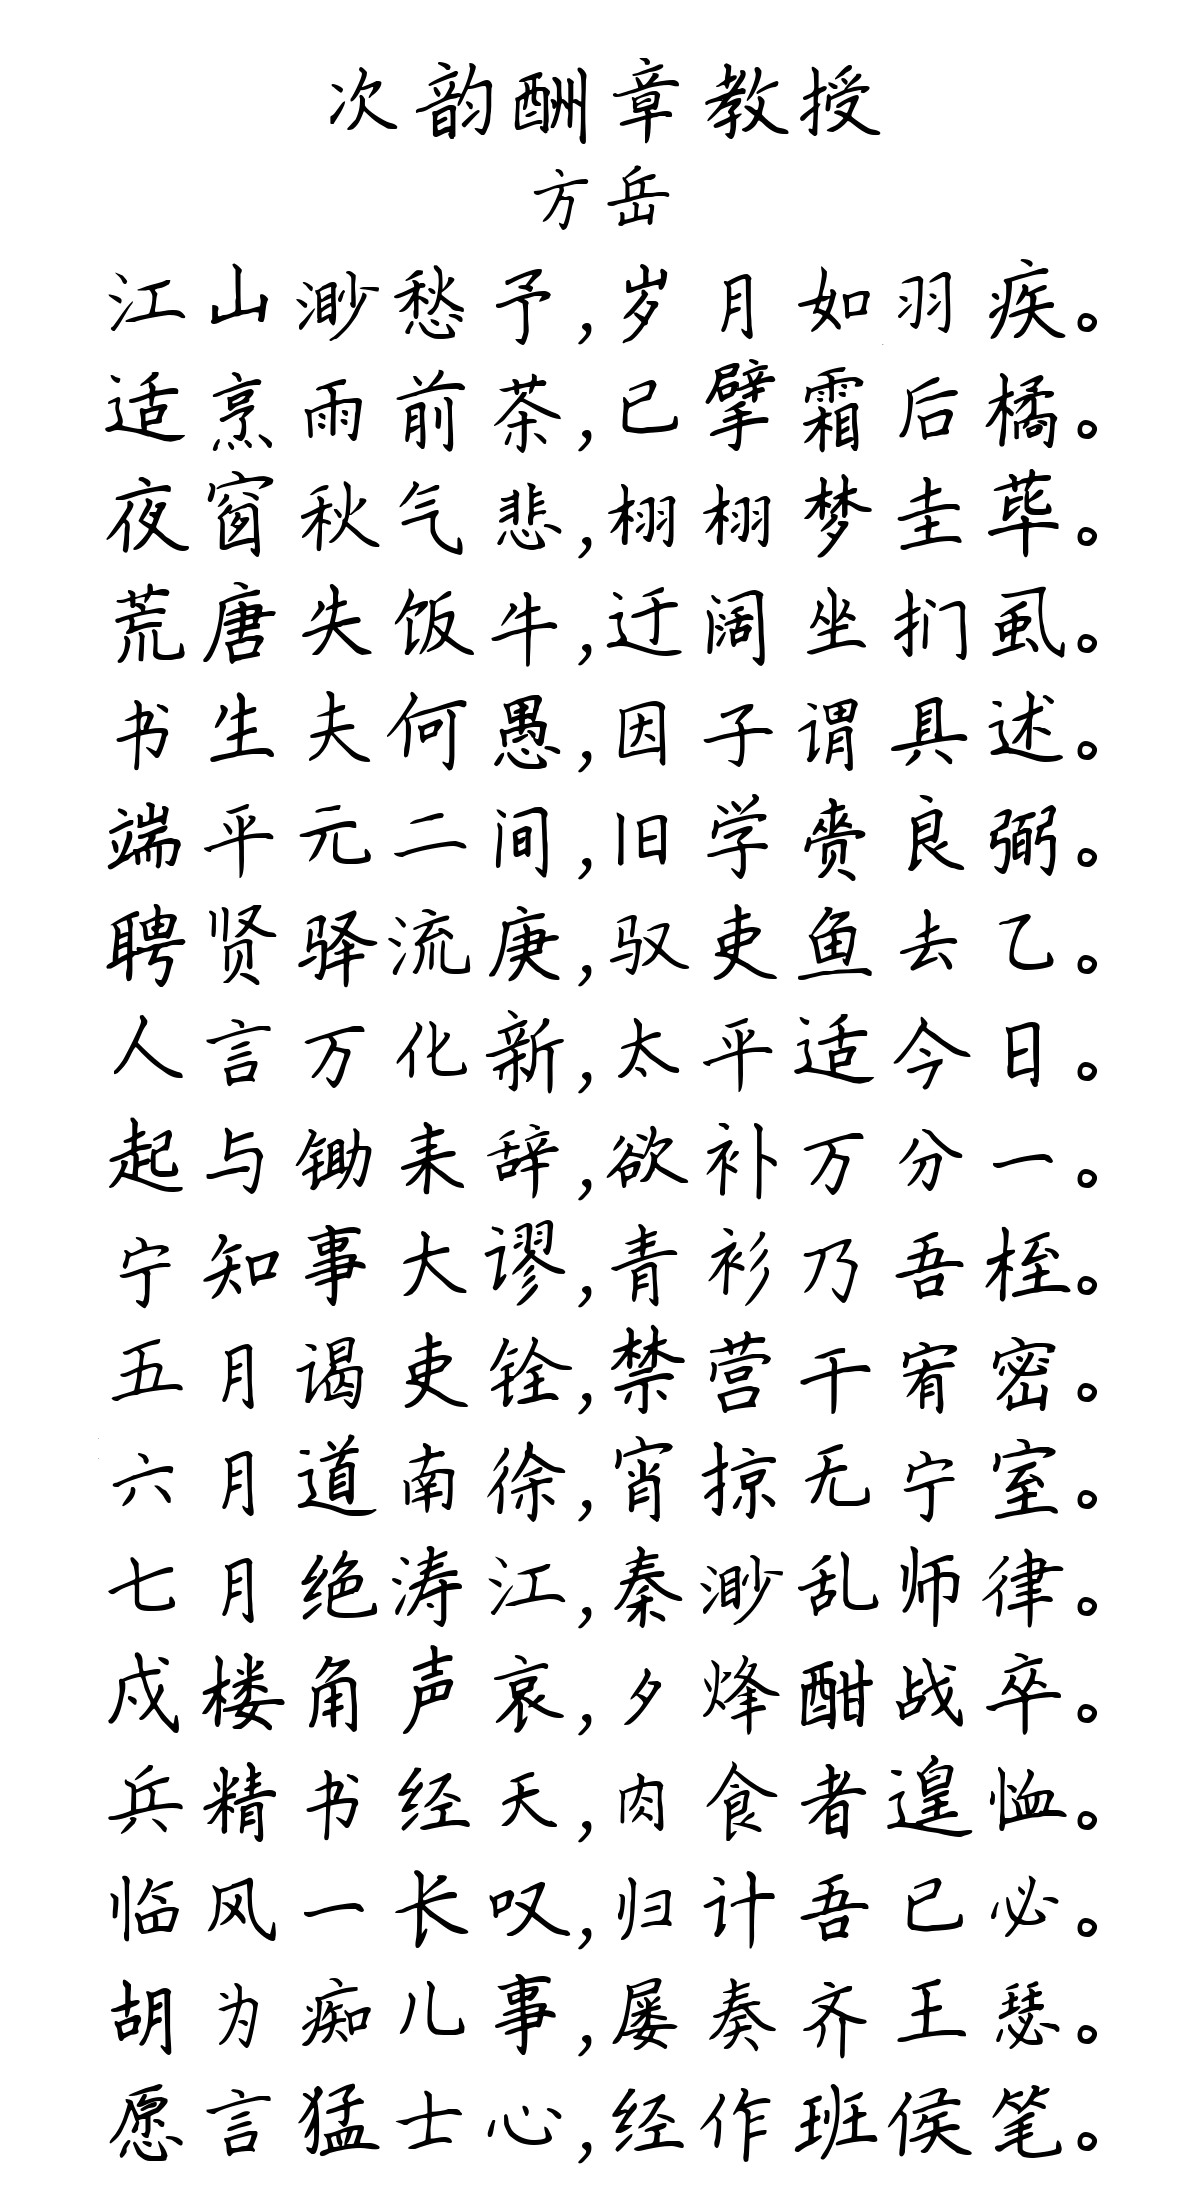 次韵酬章教授
方岳
江山渺愁予,岁月如羽疾。
适烹雨前茶,已擘霜后橘。
夜窗秋气悲,栩栩梦圭荜。
荒唐失饭牛,迂阔坐扪虱。
书生夫何愚,因子谓具述。
端平元二间,旧学赉良弼。
聘贤驿流庚,驭吏鱼去乙。
人言万化新,太平适今日。
起与锄耒辞,欲补万分一。
宁知事大谬,青衫乃吾桎。
五月谒吏铨,禁营干宥密。
六月道南徐,宵掠无宁室。
七月绝涛江,秦渺乱师律。
戍楼角声哀,夕烽酣战卒。
兵精书经天,肉食者遑恤。
临风一长叹,归计吾已必。
胡为痴儿事,屡奏齐王瑟。
愿言猛士心,经作班侯笔。